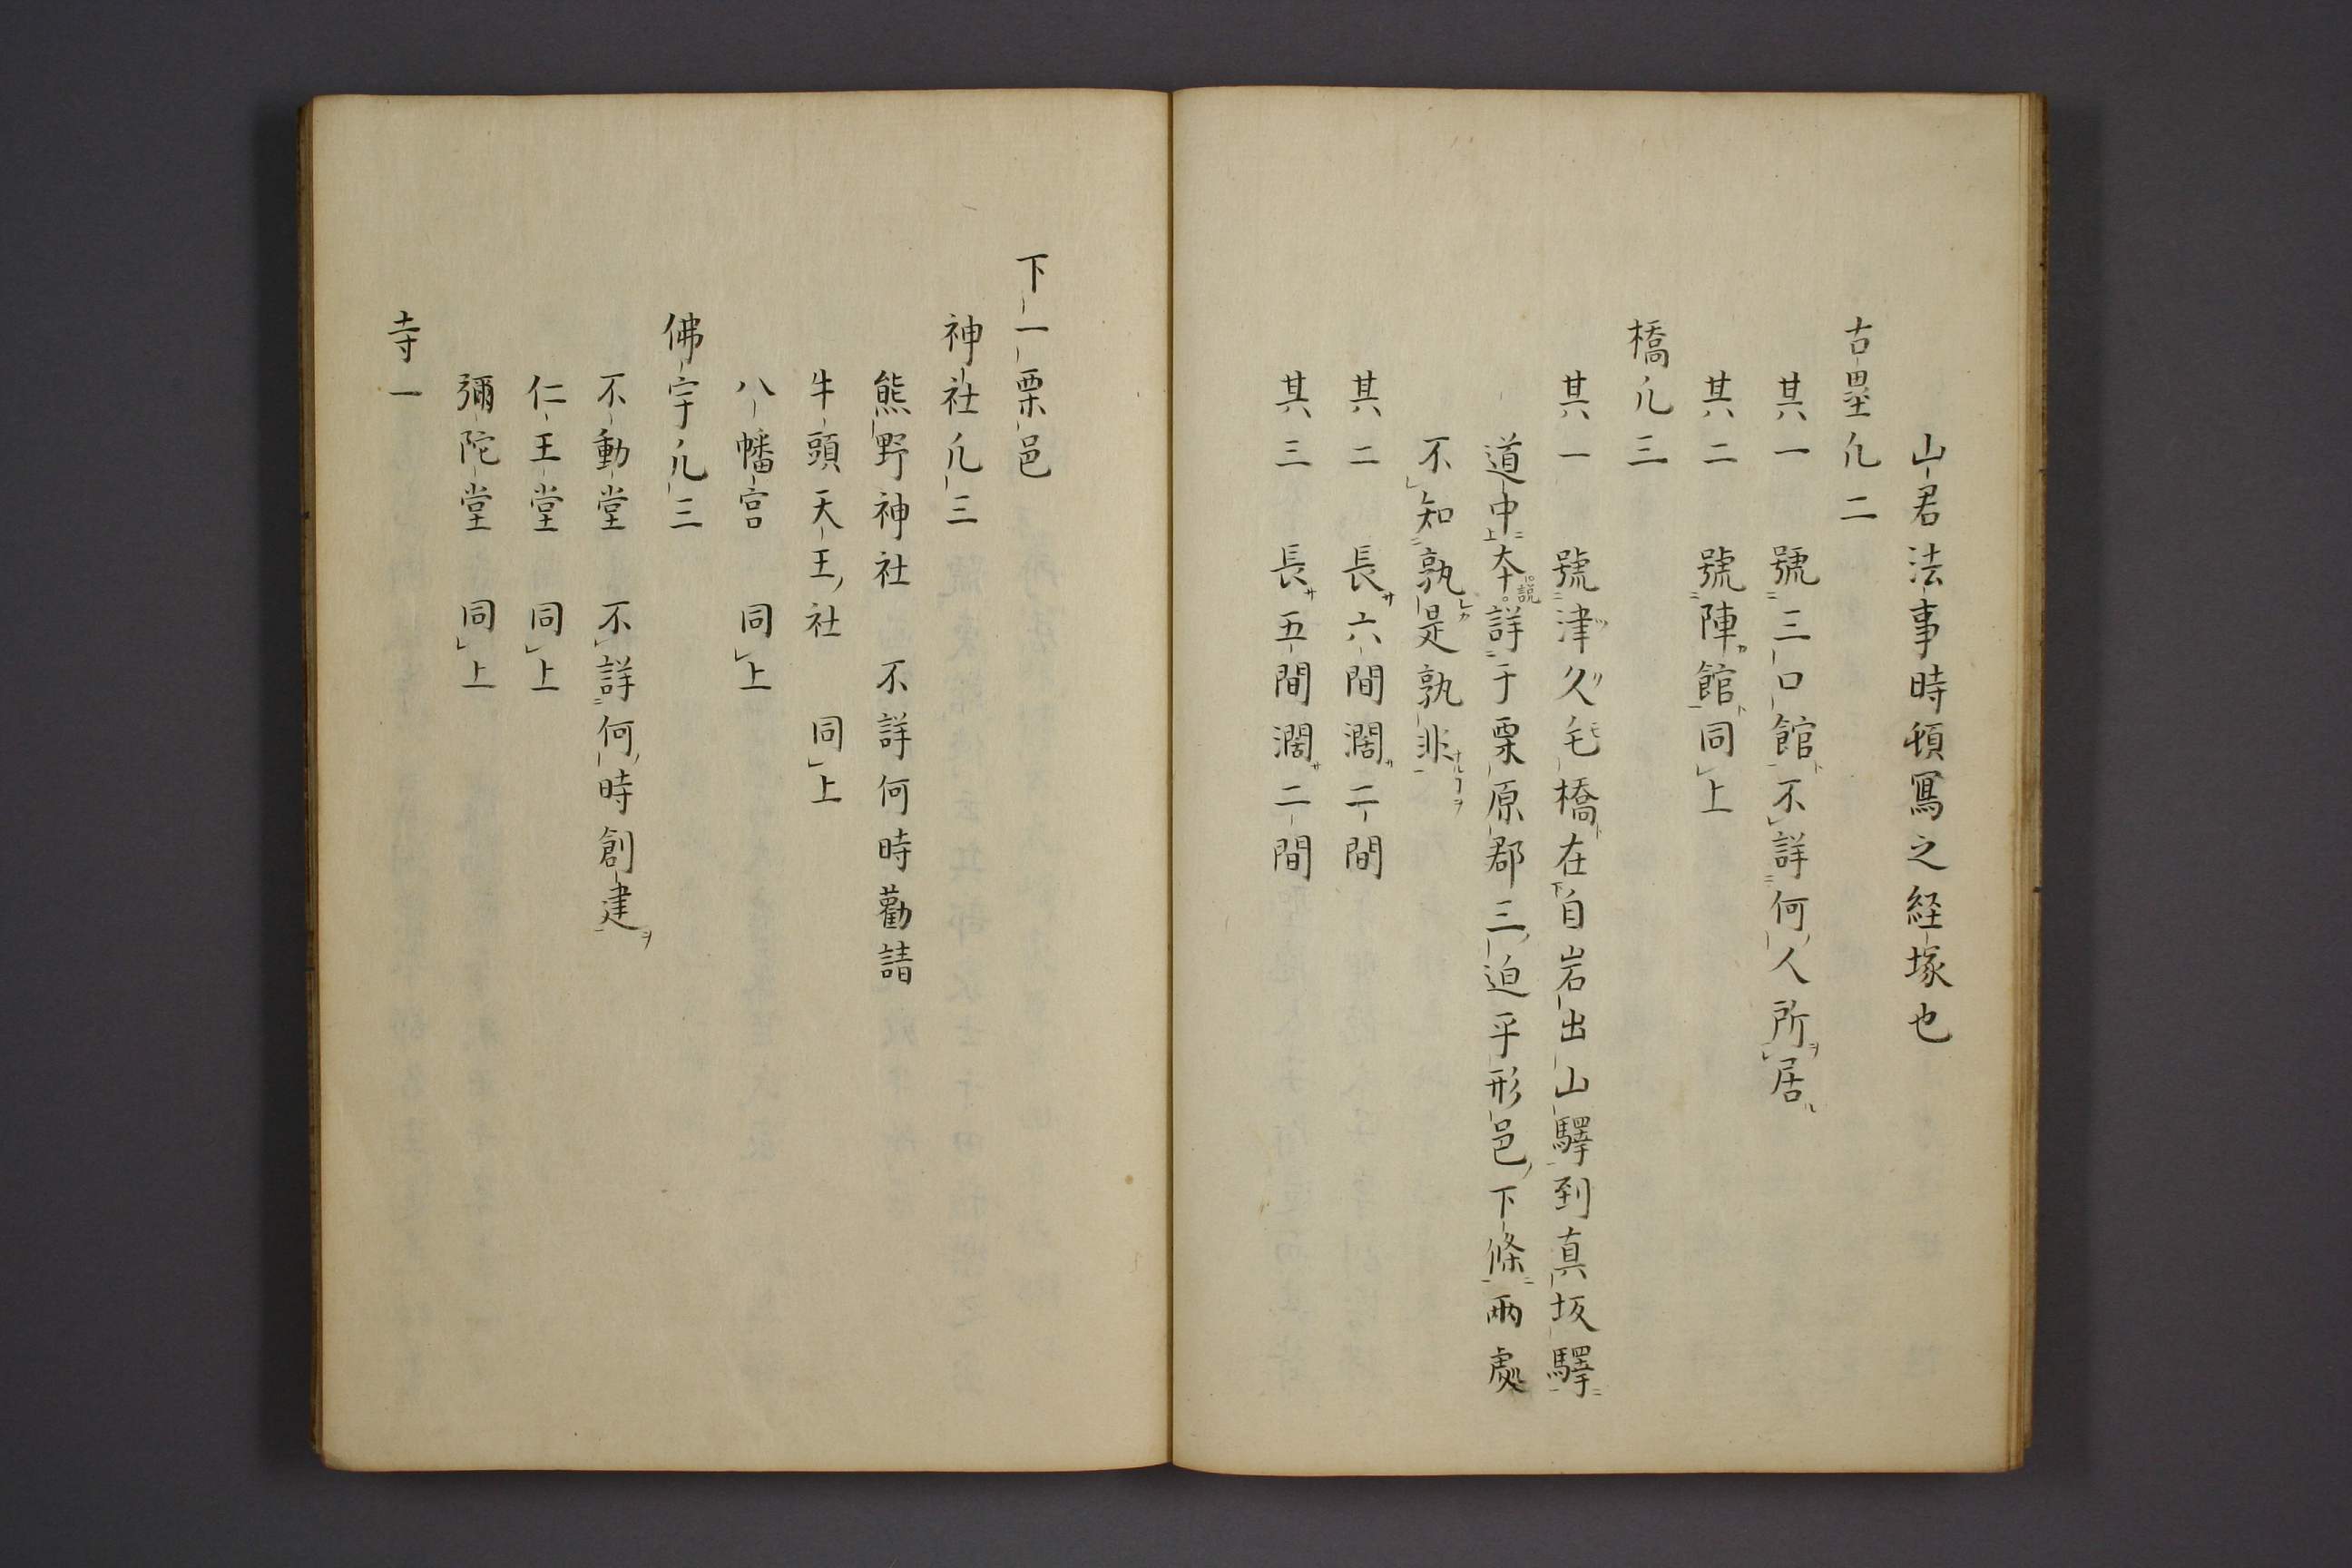 山君法事時頓寫之経塚也
古壘凢二
其一　號三口館不詳何人所居
其二　號陣館同上
橋凢三
其一　號津久毛橋在自岩出山驛到真坂驛
道中本説詳于栗原郡三迫平形邑下條兩處
不知孰是孰非
其二　長六間濶二間
其三　長五間濶二間
下一栗邑
神社凢三
熊野神社　不詳何時勸請
牛頭天王社　同上
八幡宮　同上
佛宇凢三
不動堂　不詳何時創建
仁王堂　同上
彌陀堂　同上
寺一